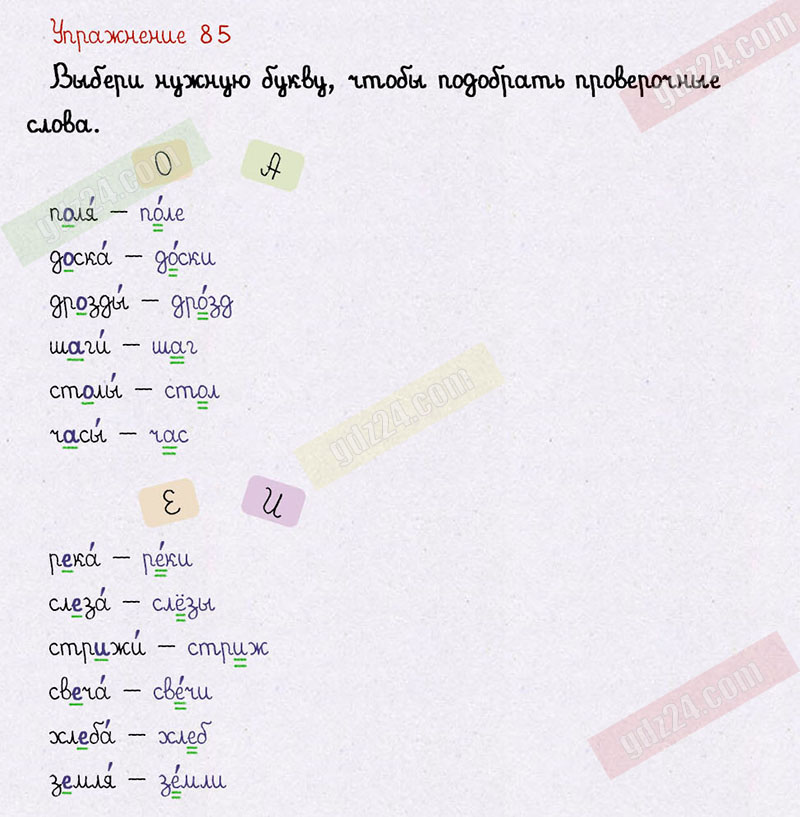 Упражнение 85
Выбери нужную букву, чтобы подобрать проверочные
слова.
О А
поля́ — по́ле
доска́ — до́ски
дрозды́ — дро́зд
шаги́ — шаг
столы́ — стол
часы́ — час
Е И
река́ — ре́ки
слеза́ — слёзы
стрижи́ — стриж
свеча́ — све́чи
хлеба́ — хлеб
земля́ — зе́мли
gdz24.com
gdz24.com
gdz24.com
gdz24.com